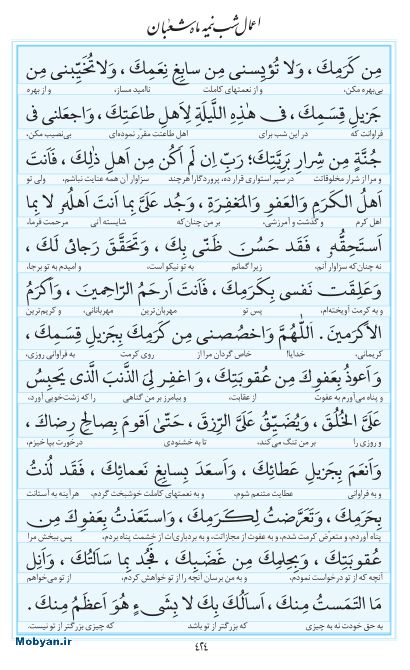 اعمال شب نیمه ماه شعبان
مِن كَرَمِكَ ، وَلا تُؤيِسنى مِن سابِغِ نِعَمِكَ ، وَلا تُخَيِّبنى مِن
بی‌بهره مکن، و از نعمتهای کاملت ناامید مساز، و از بهره
جَزيلِ قِسَمِكَ ، فى هٰذِهِ اللَّيلَةِ لِاَهلِ طاعَتِكَ ، وَاجعَلنى فى
فراوانت که در این شب برای اهل طاعتت مقرّر نموده‌ای بی‌نصیب مکن،
جُنَّةٍ مِن شِرارِ بَرِيَّتِكَ؛ رَبِّ اِن لَم اَكُن مِن اَهلِ ذٰلِكَ ، فَاَنتَ
و مرا از شرار مخلوقاتت در سپر استواری قرار ده، پروردگارا هرچند سزاوار آن همه عنایت نباشم، ولی تو
اَهلُ الكَرَمِ وَالعَفوِ وَالمَغفِرَةِ ، وَجُد عَلَىَّ بِما اَنتَ اَهلُهُ لا بِما
اهل کرم و گذشت و آمرزشی، بر من چنان‌که شایسته آنی مرحمت فرما،
اَستَحِقُّهُ ، فَقَد حَسُنَ ظَنّى بِكَ ، وَتَحَقَّقَ رَجائى لَكَ ،
نه چنان‌که سزاوار آنم، زیرا گمانم به تو نیکو است، و امیدم به تو برجا،
وَعَلِقَت نَفسى بِكَرَمِكَ ، فَاَنتَ اَرحَمُ الرّاحِمينَ ، وَاَكرَمُ
و به کرمت آویخته‌ام، پس تو مهربان‌ترین مهربانانی، و کریم‌ترین
الاَكرَمينَ . اَللّٰهُمَّ وَاخصُصنى مِن كَرَمِكَ بِجَزيلِ قِسَمِكَ ،
کریمانی، خدایا! خاص گردان مرا از روی کرمت به فراوانی روزی،
وَاَعوذُ بِعَفوِكَ مِن عُقوبَتِكَ ، وَاغفِر لِىَ الذَّنبَ الَّذى يَحبِسُ
و پناه می‌آورم به عفوت از عقابت، و بیامرز بر من گناهی را که زشت‌خویی آورد،
عَلَىَّ الخُلُقَ ، وَيُضَيِّقُ عَلَىَّ الرِّزقَ ، حَتّىٰ اَقومَ بِصالِحِ رِضاكَ ،
و روزی را بر من تنگ می‌کند، تا به خشنودی درخورت بپا خیزم،
وَاَنعَمَ بِجَزيلِ عَطائِكَ ، وَاَسعَدَ بِسابِغِ نَعمائِكَ ، فَقَد لُذتُ
و به فراوانی عطایت متنعم شوم، و به نعمتهای کاملت خوشبخت گردم، هرآینه به آستانت
بِحَرَمِكَ ، وَتَعَرَّضتُ لِكَرَمِكَ ، وَاستَعَذتُ بِعَفوِكَ مِن
پناه آوردم، و متعرّض کرمت شدم، و به عفوت از مجازاتت، و به بردباری‌ات از خشمت پناه بردم، پس ببخش مرا
عُقوبَتِكَ ، وَبِحِلمِكَ مِن غَضَبِكَ ، فَجُد بِما سَاَلتُكَ ، وَاَنِل
آنچه که از تو درخواست نمودم، و به من برسان آنچه را از تو خواهش کردم، از تو می‌خواهم
مَا التَمَستُ مِنكَ ، اَسأَلُكَ بِكَ لا بِشَىءٍ هُوَ اَعظَمُ مِنكَ .
به حق خودت نه به چیزی که بزرگتر از تو باشد که چیزی بزرگتر از تو نیست.
۴۲۴
Mobyan.ir